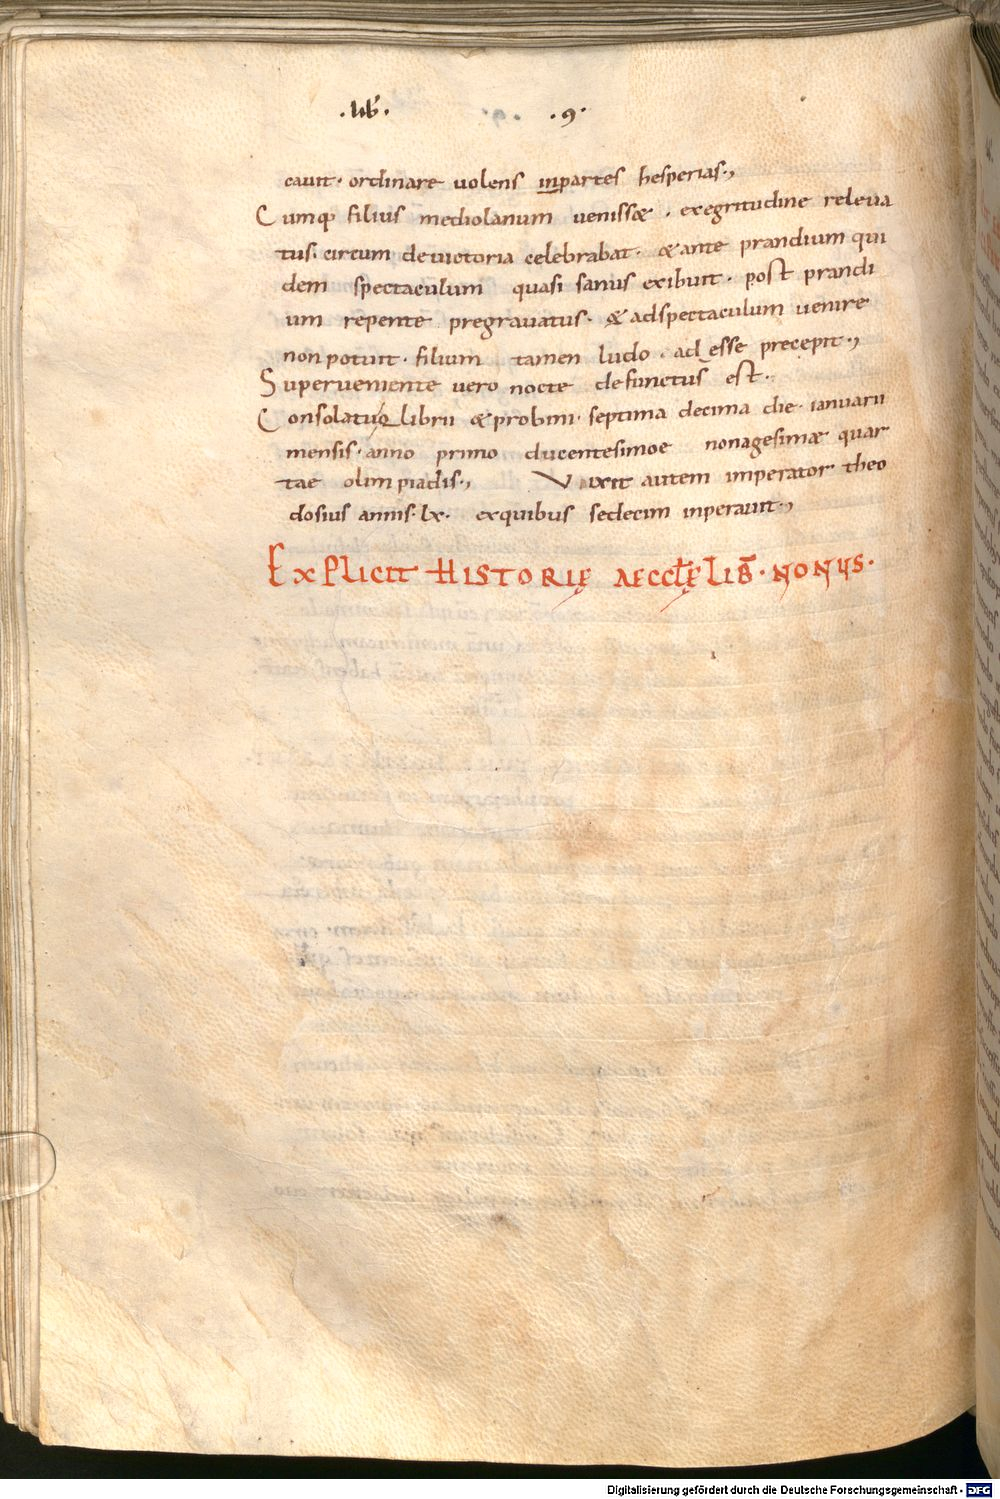 .lib̄. .9.
cauit· ordinare uolens inpartes hesperias·,
Cumq; filius mediolanum uenissæ · exegritudine releua
tus· circum deuictoria celebrabat· &ante prandium qui
dem spectaculum quasi sanus exibuit· post prandi
um repente pregrauatus· & adspectaculum uenire
non potuit· filium tamen ludo · ad esse precepit·,
Superueniente uero nocte defunctus est·
Consolatuq librii &probini· septima decima die· ianuarii
mensis· anno primo ducentesimoe nonagesimæ quar
tae olimpiadis·, Vixit autem imperator theo
dosius annis· lx· exquibus sedecim inperauit·,
EXPLICIT HISTORIĘ AECCLĘ LIB̄· NONUS·
Digitalisierung gefördert durch die Deutsche Forschungsgemeinschaft - DFG